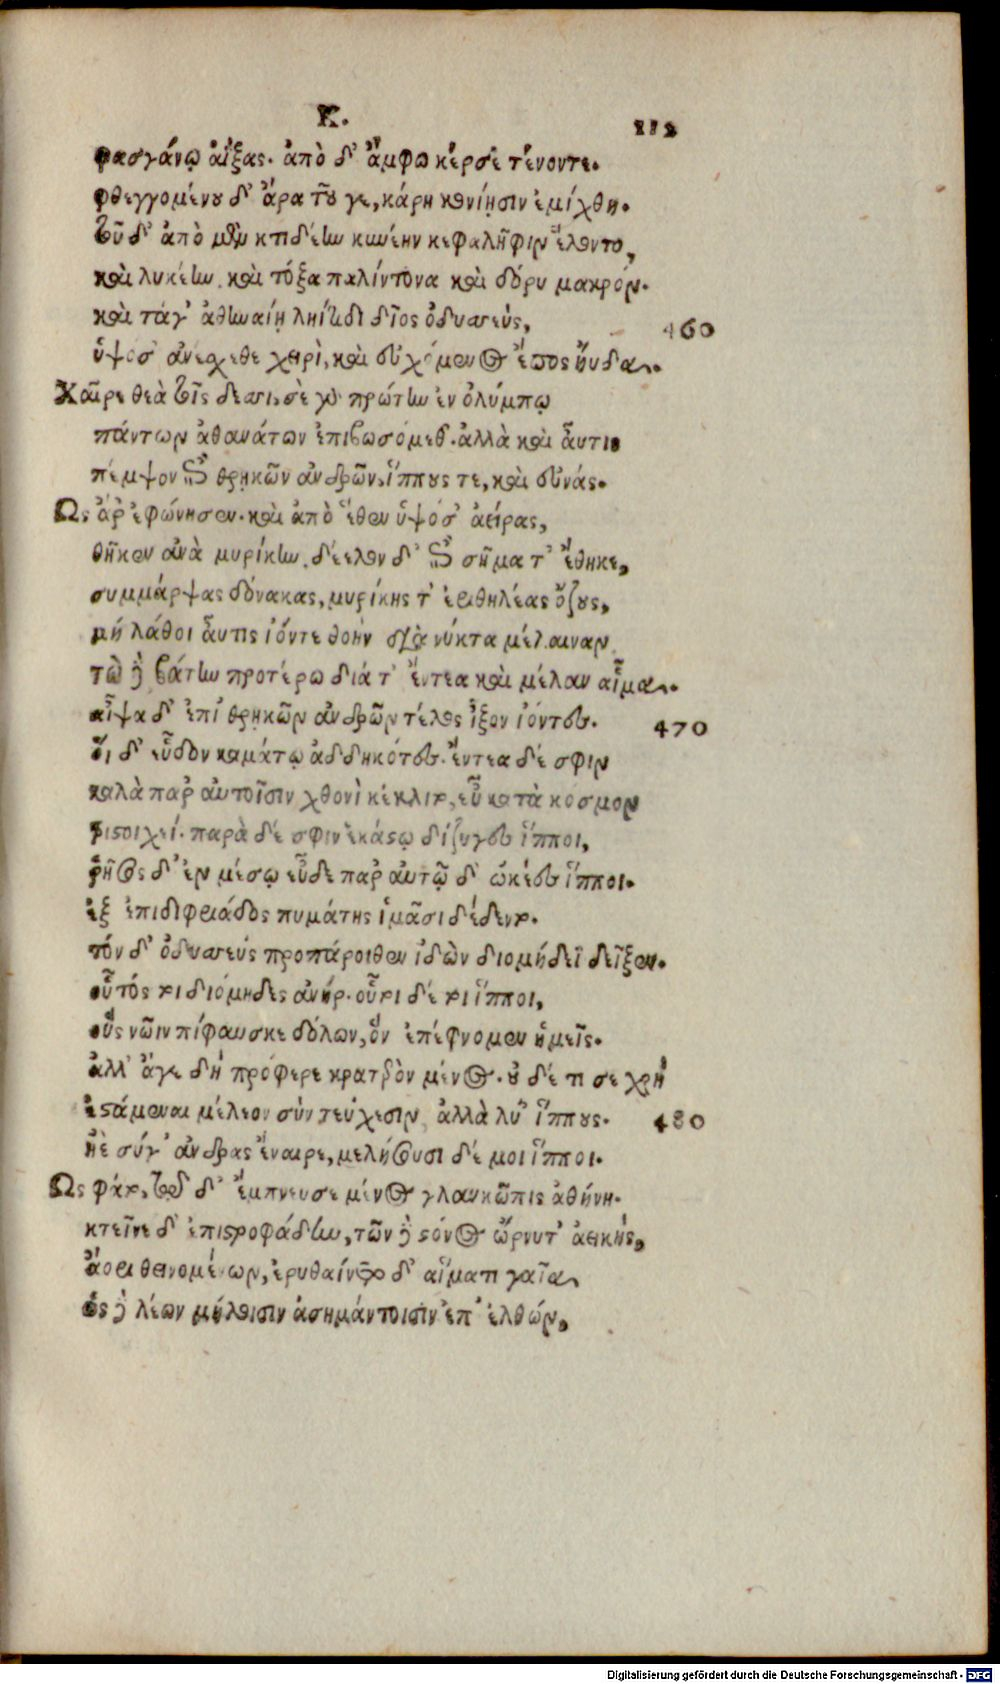 Κ.
112
φασγάνῳ ἀΐξας. ἀπὸ δ' ἄμφω κέρσε τένοντε.
φθεγγομένου δ' ἄρα τοῦ γε, κάρη κονίῃσιν ἐμίχθη.
τοῦ δ' ἀπὸ μὲν κτιδέην κυνέην κεφαλῆφιν ἕλοντο,
καὶ λυκέην, καὶ τόξα παλίντονα καὶ δόρυ μακρόν.
καὶ τάγ' ἀθηναίῃ ληίτιδι δῖος ὀδυσσεύς,
460
ὑψόσ' ἀνέσχεθε χειρὶ, καὶ εὐχόμενος ἔπος ηὔδα.
Χαῖρε θεὰ τοῖς δεσσι, σὲ γὰρ πρώτην ἐν ὀλύμπῳ
πάντων ἀθανάτων ἐπιβωσόμεθ. ἀλλὰ καὶ αὖτις
πέμψον ἐπὶ θρῃκῶν ἀνδρῶν, ἵππους τε, καὶ εὐνάς.
Ως ἄρ' ἐφώνησεν. καὶ ἀπὸ ἕθεν ὑψόσ' ἀείρας,
θῆκεν ἀνὰ μυρίκην, δέελον δ' ἐπὶ σῆμα τ' ἔθηκε,
συμμάρψας δόνακας, μυρίκης τ' ἐριθηλέας ὄζους,
μή λάθοι αὖτις ἰόντε θοὴν διὰ νύκτα μέλαιναν,
τὼ δὲ βάτην προτέρω διά τ' ἔντεα καὶ μέλαν αἷμα.
αἶψα δ' ἐπὶ θρῃκῶν ἀνδρῶν τέλος ἷξον ἰόντες.
470
Ὅι δ' εὗδον καμάτῳ ἀδδηκότες. ἔντεα δέ σφιν
καλὰ παρ' αὐτοῖσιν χθονὶ κέκλιτο, εὖ κατὰ κόσμον
τριστοιχεί. παρὰ δέ σφιν ἑκάστῳ δίζυγες ἵπποι,
ῥῆσος δ' ἐν μέσῳ εὗδε παρ' αὐτῷ δ' ὠκέες ἵπποι.
ἐξ ἐπιδιφριάδος πυμάτης ἱμᾶσι δέδεντο.
τόν δ' ὀδυσσεύς προπάροιθεν ἰδὼν διομήδεϊ δεῖξεν.
οὗτός τοι διόμηδες ἀνήρ. οὗτοι δέ τοι ἵπποι,
οὓς νῶιν πίφαυσκε δόλων, ὃν ἐπέφνομεν ἡμεῖς.
ἀλλ' ἄγε δὴ πρόφερε κρατερὸν μένος. οὐ δέ τι σε χρὴ
ἑστάμεναι μέλεον σὺν τεύχεσιν, ἀλλὰ λύ' ἵππους.
480
ἠὲ σύγ' ἄνδρας ἔναιρε, μελήσουσι δέ μοι ἵπποι.
Ως φάτο, τῷ δ' ἔμπνευσε μένος γλαυκῶπις ἀθήνη.
κτεῖνε δ' ἐπιστροφάδην, τῶν δὲ στόνος ὤρνυτ' ἀεικής,
ἄορι θεινομένων, ἐρυθαίνετο δ' αἵματι γαῖα
ὡς δὲ λέων μήλοισιν ἀσημάντοισιν ἐπ' ἐλθών,
Digitalisierung gefördert durch die Deutsche Forschungsgemeinschaft - DFG